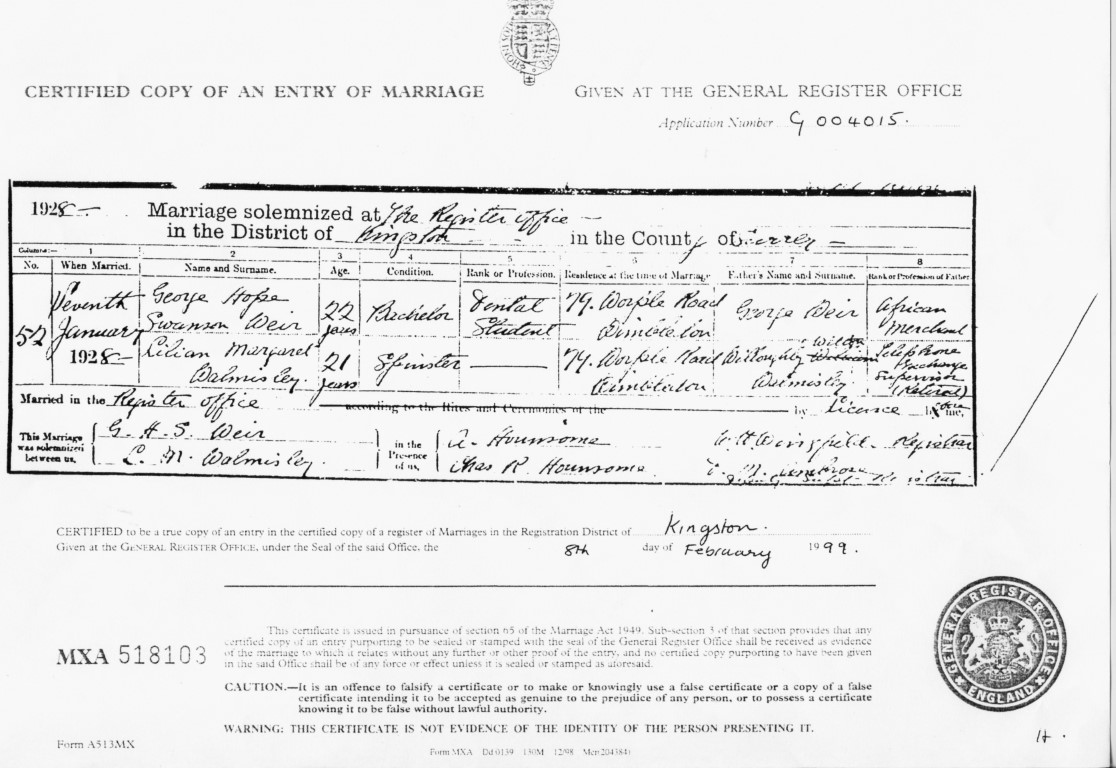 CERTIFIED COPY OF AN ENTRY OF MARRIAGE
GIVEN AT THE GENERAL REGISTER OFFICE
Application Number G 004015.
1928 Marriage solemnized at The Register office
in the District of Kingston in the County of Surrey
Columns:— 1 2 3 4 5 6 7 8
No. When Married. Name and Surname. Age. Condition. Rank or Profession. Residence at the time of Marriage Father's Name and Surname. Rank or Profession of Father.
52 Seventh January 1928
George Hope Swanson Weir
22 years
Bachelor
Dental Student
79. Worple Road Wimbledon
George Weir
African Merchant
Lilian Margaret Walmisley.
21 years
Spinster
79. Worple Road Wimbledon
Willoughby Walmisley
Telephone Exchange Supervisor (Retired)
Married in the Register office according to the Rites and Ceremonies of the by Licence me,
This Marriage was solemnized between us,
G. H. S. Weir
L. M. Walmisley.
in the Presence of us,
A. Hounsome
Chas R. Hounsome
Wingfield Registrar
Ambrose
Registrar
CERTIFIED to be a true copy of an entry in the certified copy of a register of Marriages in the Registration District of Kingston.
Given at the GENERAL REGISTER OFFICE, under the Seal of the said Office, the 8th day of February 1999.
MXA 518103
This certificate is issued in pursuance of section 65 of the Marriage Act 1949. Sub-section 3 of that section provides that any
certified copy of an entry purporting to be sealed or stamped with the seal of the General Register Office shall be received as evidence
of the marriage to which it relates without any further or other proof of the entry, and no certified copy purporting to have been given
in the said Office shall be of any force or effect unless it is sealed or stamped as aforesaid.
CAUTION.—It is an offence to falsify a certificate or to make or knowingly use a false certificate or a copy of a false
certificate intending it to be accepted as genuine to the prejudice of any person, or to possess a certificate
knowing it to be false without lawful authority.
WARNING: THIS CERTIFICATE IS NOT EVIDENCE OF THE IDENTITY OF THE PERSON PRESENTING IT.
GENERAL REGISTER OFFICE ENGLAND
Form A513MX
Form MXA Dd 0139 130M 12/98